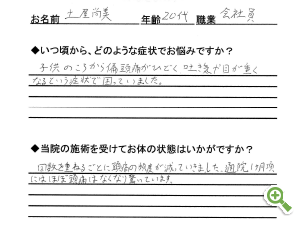 お名前 土屋尚美 年齢 20代 職業 会社員
◆いつ頃から、どのような症状でお悩みですか？
子供のころから偏頭痛がひどく 吐き気や目が重く
なるという症状で困っていました。
◆当院の施術を受けてお体の状態はいかがですか？
回数を重ねるごとに頭痛の頻度が減っていきました。通院 ヶ月頃
にはほぼ頭痛はなくなり驚いています。